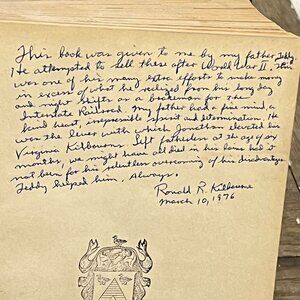 This book was given to me by my father, Teddy.
He attempted to sell these after World War II. This
was one of his many extra efforts to make money
in excess of what he realized from his long day
and night shifts as a brakeman for the
Interstate Railroad. My father had a fine mind, a
kind heart, irrepressible spirit and determination. He
was the lever with which Jonathan elevated his
Virginia Kilbournes. Left fatherless at the age of six
months, we might have all died in his loins had it
not been for his relentless overcoming of his disadvantage.
Teddy helped him. Always.
Ronald R. Kilbourne
March 10, 1976